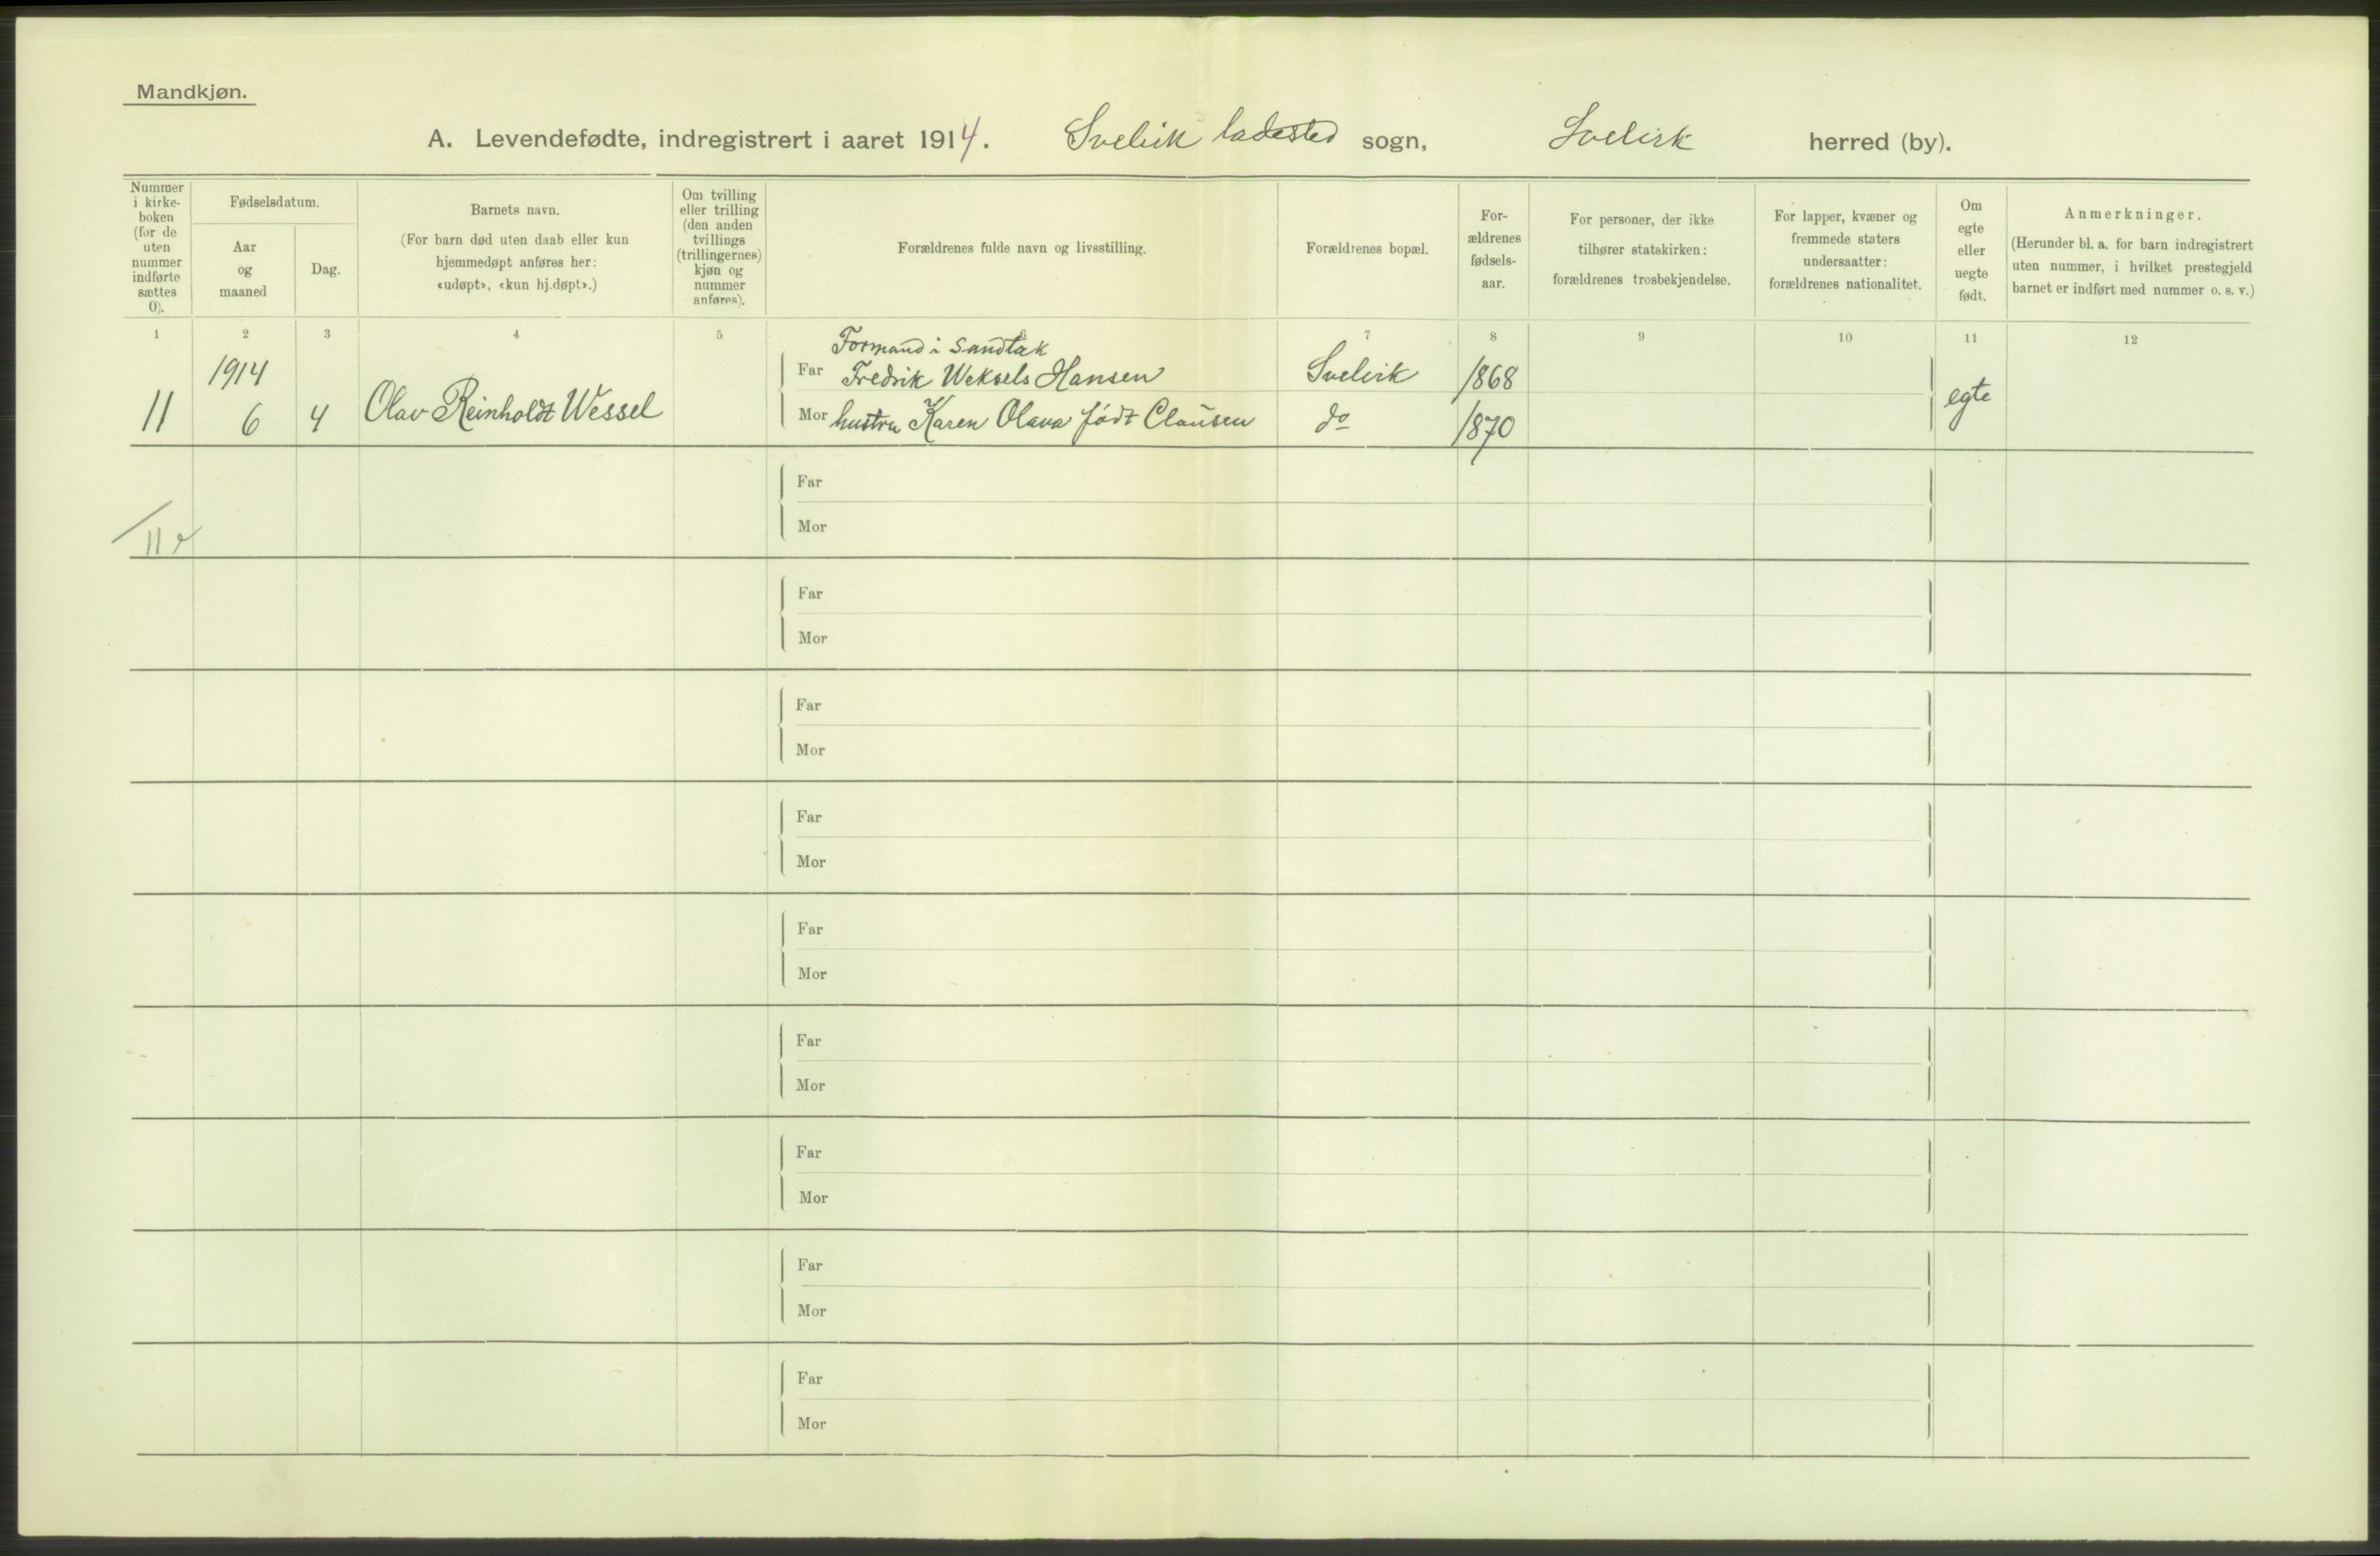 Mandkjøn.
A. Levendefødte, indregistrert i aaret 1914. Svelvik ladested sogn, Svelvik herred (by).
Nummer
i kirke-
boken
(for de
uten
nummer
indførte
sættes
0).
Fødselsdatum.
Aar
og
maaned
Dag.
Barnets navn.
(For barn død uten daab eller kun
hjemmedøpt anføres her:
«udøpt», «kun hj.døpt».)
Om tvilling
eller trilling
(den anden
tvillings
(trillingernes)
kjøn og
nummer
anføres).
Forældrenes fulde navn og livsstilling.
Forældrenes bopæl.
For-
ældrenes
fødsels-
aar.
For personer, der ikke
tilhører statskirken:
forældrenes trosbekjendelse.
For lapper, kvæner og
fremmede staters
undersaatter:
forældrenes nationalitet.
Om
egte
eller
uegte
født.
Anmerkninger.
(Herunder bl. a. for barn indregistrert
uten nummer, i hvilket prestegjeld
barnet er indført med nummer o. s. v.)
1 2 3 4 5 6 7 8 9 10 11 12
Formand i Sandtak
1914 Far Fredrik Weksels Hansen Svelvik 1868
11 6 4 Olav Reinholdt Wessel Mor hustru Karen Olava født Clausen do 1870 egte
Far
11
Mor
Far
Mor
Far
Mor
Far
Mor
Far
Mor
Far
Mor
Far
Mor
Far
Mor
Far
Mor